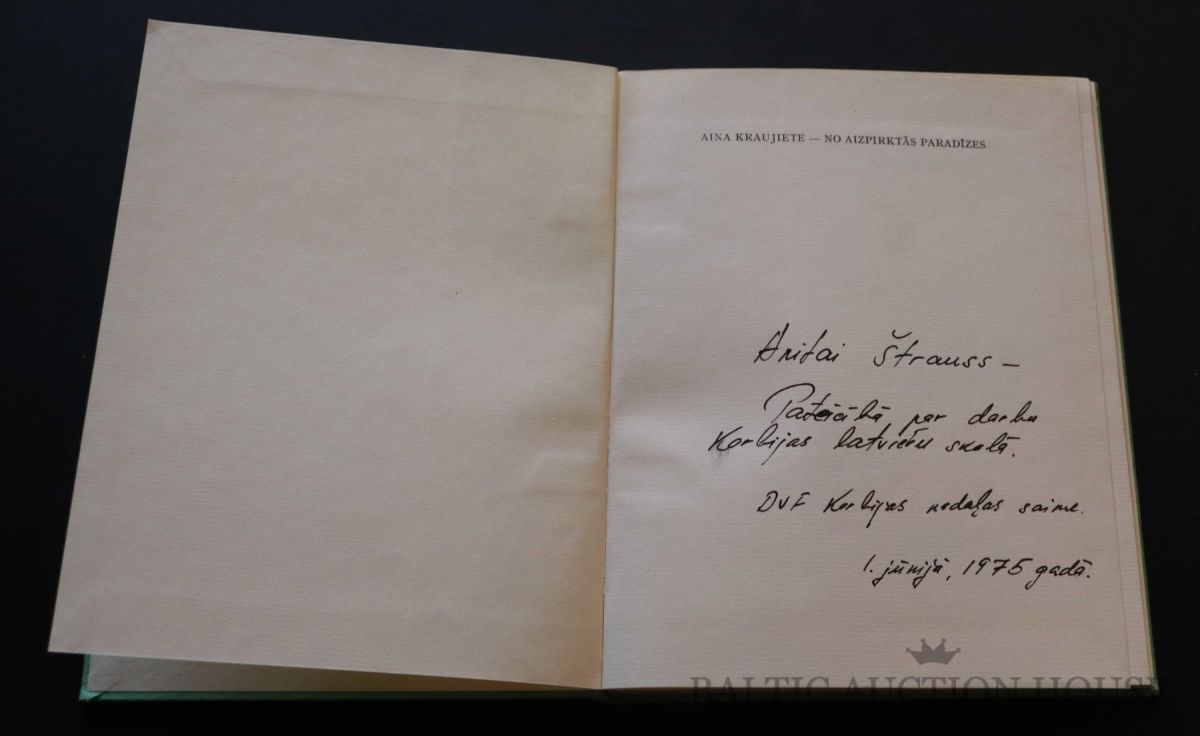 AINA KRAUJIETE — NO AIZPIRKTĀS PARADĪZES
Anitai Štrauss —
Pateicībā par darbu
Korbijas latviešu skolā.
DVF Korbijas nodaļas saime.
1. jūnijā, 1975 gadā.
BALTIC AUCTION HOUSE